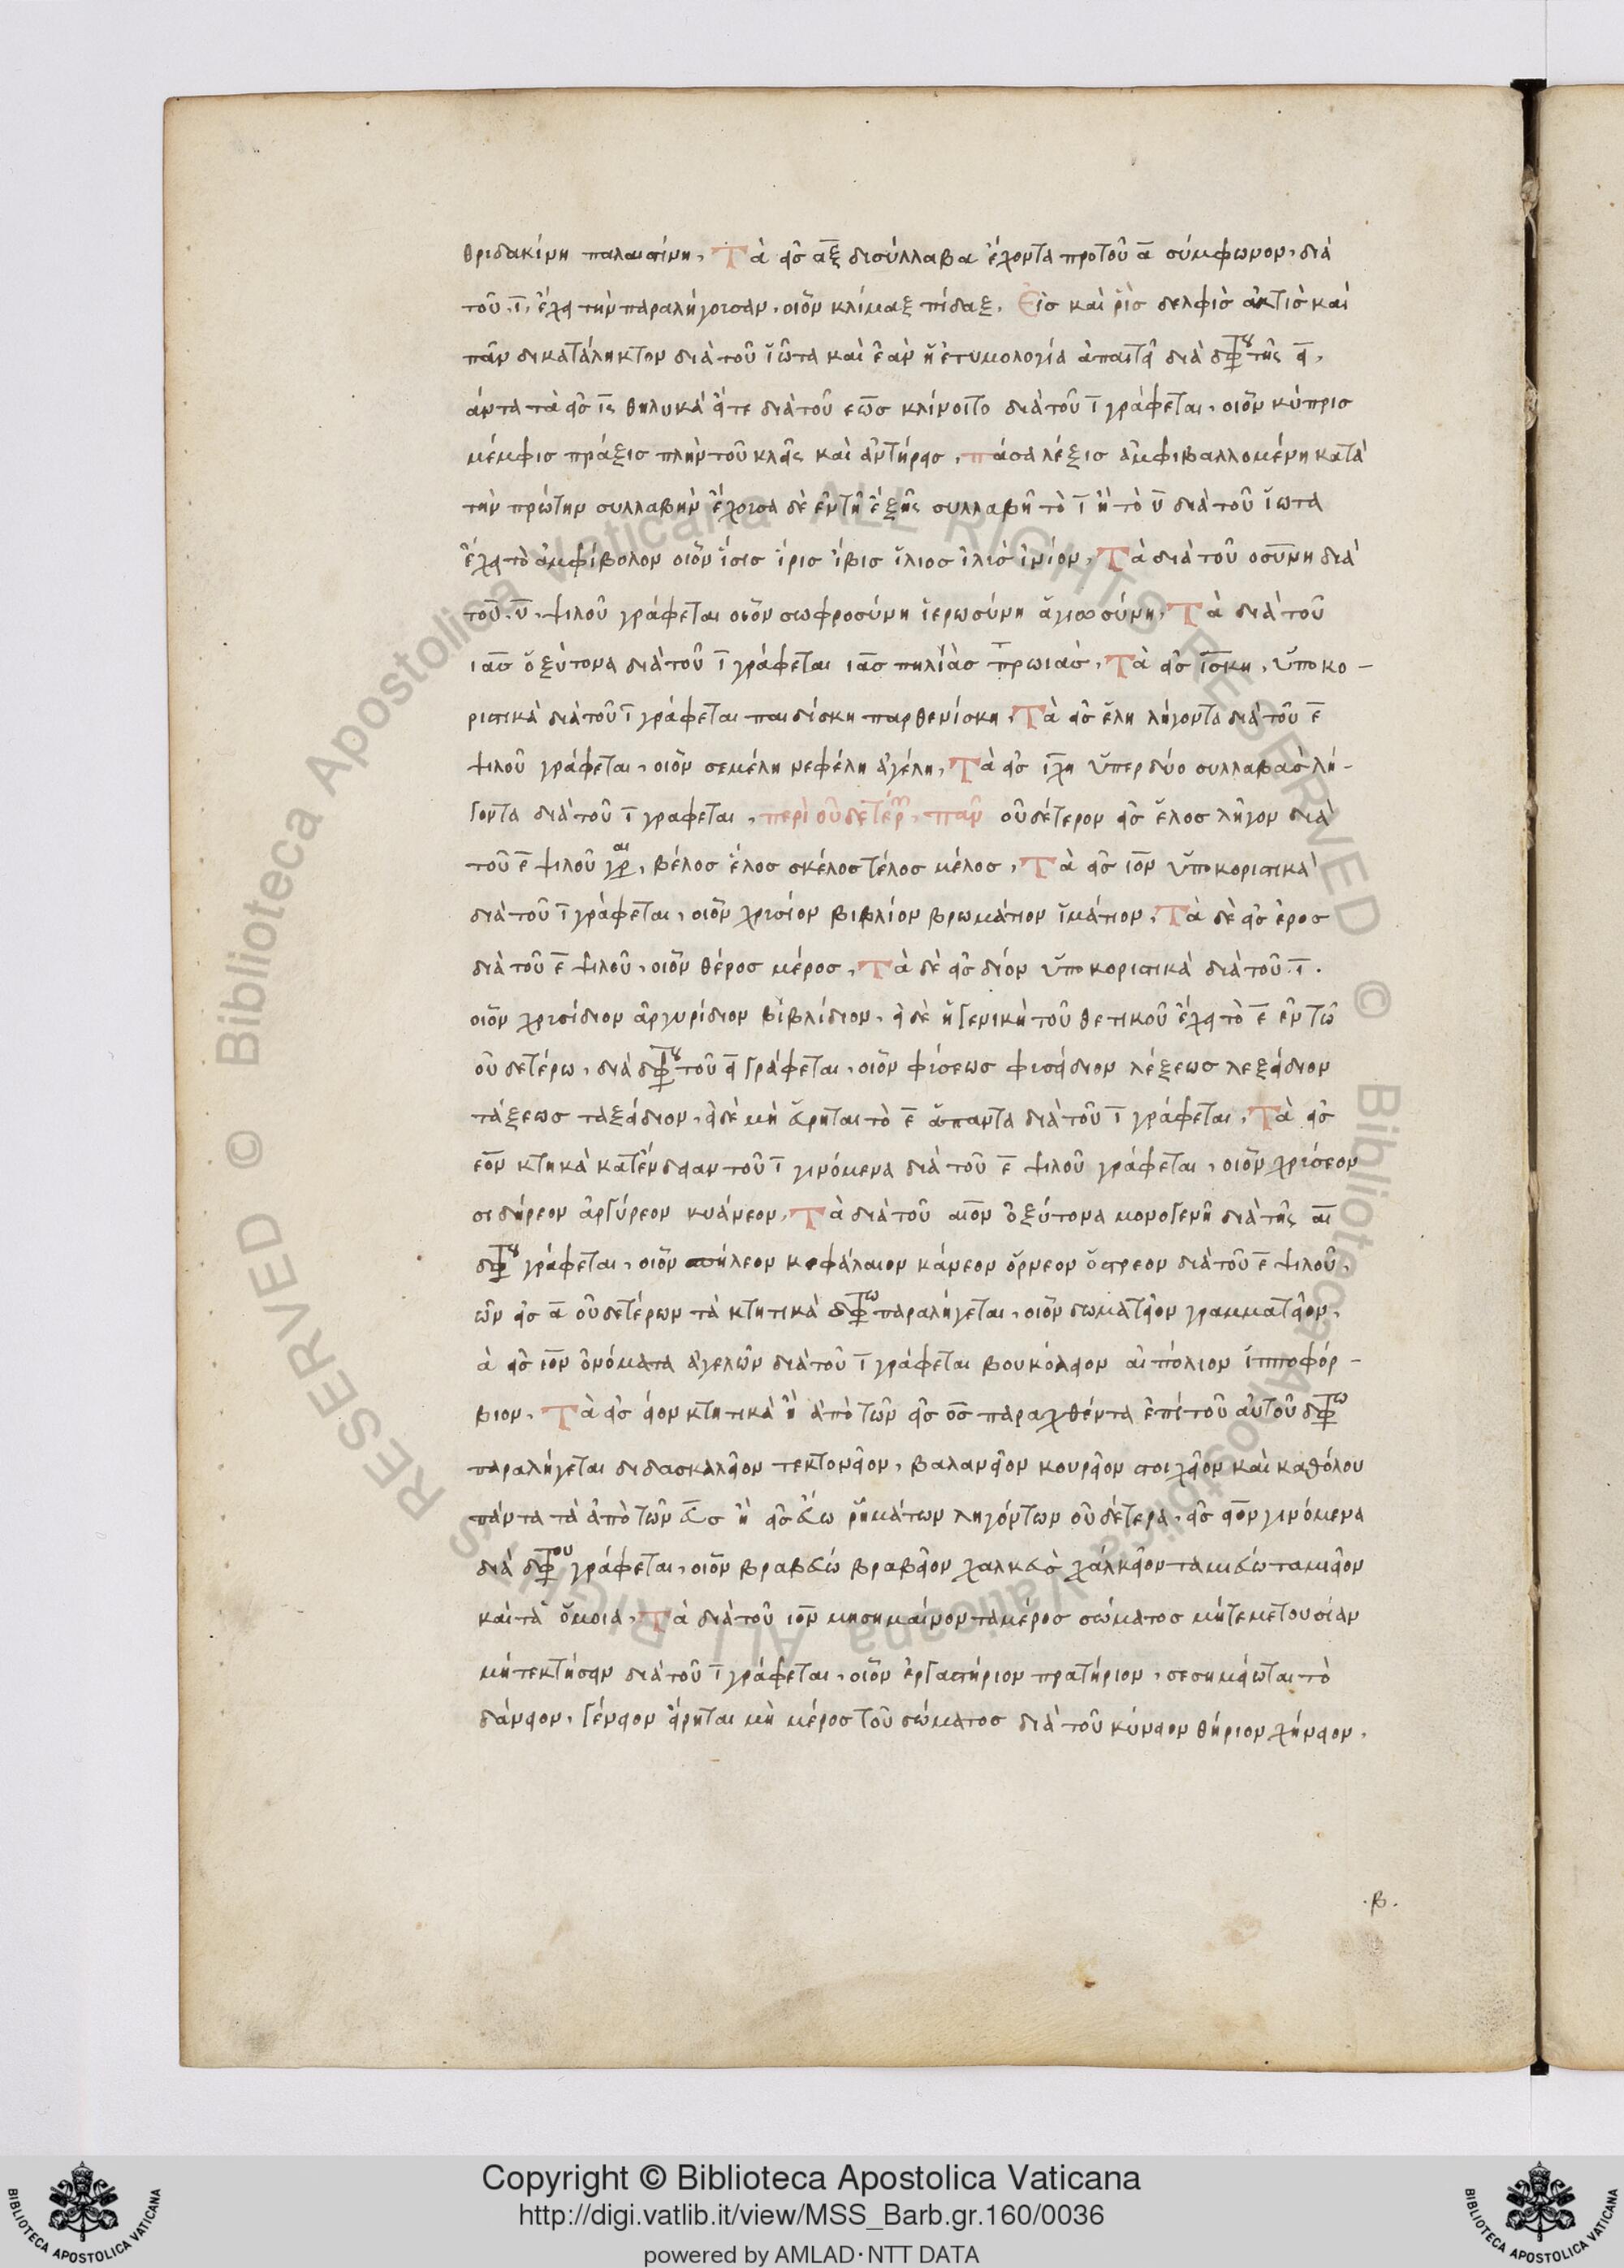 θριδακίνη παλαιστίνη, Τὰ εἰς αξ δισύλλαβα ἔχοντα προ τοῦ α σύμφωνον, διὰ
τοῦ ι, ἔχει τὴν παραλήγουσαν, οἷον κλίμαξ πίδαξ. Εἰσ καὶ ῥὶσ δελφὶσ ἀκτὶσ καὶ
πᾶν δικατάληκτον διὰ τοῦ ἰῶτα καὶ ἐὰν ἡ ἐτυμολογία ἀπαιτεῖ διὰ διφθγου τῆς ει,
άντα τὰ εἰσ ις θηλυκὰ εἴτε διὰ τοῦ εωσ κλίνοιτο διὰ τοῦ ι γράφεται, οἷον κύπρισ
μέμφισ πράξισ πλὴν τοῦ κλεῖς καὶ ἀντήρεισ, πάσα λέξισ ἀμφιβαλλομένη κατὰ
τὴν πρώτην συλλαβὴν ἔχουσα δὲ ἐν τῇ ἑξῆς συλλαβῆ τὸ ι ἢ τὸ υ διὰ τοῦ ἰωτα
ἔχει τὸ ἀμφίβολον οἷον ἴσισ ἴρισ ἴβισ ἴλιοσ ἰλισ ἰνίον, Τὰ διὰ τοῦ οσυνη διὰ
τοῦ υ, ψιλοῦ γράφεται οἷον σωφροσύνη ἱερωσύνη ἁγιωσύνη, Τὰ διὰ τοῦ
ιασ ὀξύτονα διὰ τοῦ ι γράφεται ιασ πηλιὰσ πρωιασ, Τὰ εἰσ ισκη, ὑποκο-
ριστικὰ διὰ τοῦ ι γράφεται παιδίσκη παρθενίσκη, Τὰ εἰσ ἕλη λήγοντα διὰ τοῦ ε
ψιλοῦ γράφεται, οἷον σεμέλη νεφέλη ἀγέλη, Τὰ εἰσ ιχη ὑπερ δύο συλλαβὰσ λή-
γοντα διὰ τοῦ ι γραφεται, περὶ οὐδετέρων, παν οὐδέτερον εἰσ ἕλοσ λῆγον διὰ
τοῦ ε ψιλοῦ γραι, βέλοσ ἕλοσ σκέλοσ τέλοσ μέλοσ, Τὰ εἰσ ιον ὑποκοριστικὰ
διὰ τοῦ ι γράφεται, οἷον χρυσίον βιβλίον βρωμάτιον ἱμάτιον, Τὰ δὲ εἰσ ἐροσ
διὰ τοῦ ε ψιλοῦ, οἷον θέροσ μέροσ, Τὰ δὲ εἰσ δίον ὑποκοριστικὰ διὰ τοῦ ι.
οἷον χρυσίδιον ἀργυρίδιον βιβλίδιον, εἰ δὲ ἡ γενικὴ τοῦ θετικοῦ ἔχει τὸ ε ἐν τῶ
οὐδετέρω, διὰ διφθγου τοῦ ει γράφεται, οἷον φύσεωσ φυσείδιον λέξεωσ λεξείδιον
τάξεωσ ταξείδιον, εἰ δὲ μὴ εὕρηται τὸ ε ἅπαντα διὰ τοῦ ι γράφεται, Τὰ εἰσ
εον κτηκὰ κατ' ἔνδειαν τοῦ ι γινόμενα διὰ τοῦ ε ψιλοῦ γράφεται, οἷον χρύσεον
σιδήρεον ἀργύρεον κυάνεον, Τὰ διὰ τοῦ αιον ὀξύτονα μονογενῆ διὰ τῆς αι
διφθγου γράφεται, οἷον σπήλεον κεφάλαιον κάνεον ὄρνεον ὄστρεον διὰ τοῦ ε ψιλοῦ,
ῶν εἰσ α οὐδετέρων τὰ κτητικὰ διφθγω παραλήγεται, οἷον σωματεῖον γραμματεῖον,
ὰ εἰσ ιον ὀνόματα ἀγελῶν διὰ τοῦ ι γράφεται βουκόλειον αἰπόλιον ἱπποφόρ-
βιον, Τὰ εἰσ ειον κτητικὰ ἢ ἀπὸ τῶν εἰσ οσ παραχθέντα ἐπὶ τοῦ αὐτοῦ διφθγω
παραλήγεται διδασκαλεῖον τεκτονεῖον, βαλανεῖον κουρεῖον στοιχεῖον καὶ καθόλου
πάντα τὰ ἀπὸ τῶν ευσ ἢ εἰσ εύω ῥημάτων ληγόντων οὐδέτερα, εἰσ ειον γινόμενα
διὰ διφθγου γράφεται, οἷον βραβεύω βραβεῖον χαλκεὺσ χάλκειον ταμιεύω ταμιεῖον
καὶ τὰ ὅμοια, Τὰ διὰ τοῦ ιον μη σημαίνοντα μέροσ σώματοσ μήτε μετουσίαν
μήτε κτήσειν διὰ τοῦ ι γράφεται, οἷον ἐργαστήριον πρατήριον, σεσημείωται τὸ
δάνειον, γένειον εἴρηται μὴ μέροσ τοῦ σώματοσ διὰ τοῦ κύνειον θήριον χήνειον,
.β.
Copyright © Biblioteca Apostolica Vaticana
http://digi.vatlib.it/view/MSS_Barb.gr.160/0036
powered by AMLAD·NTT DATA